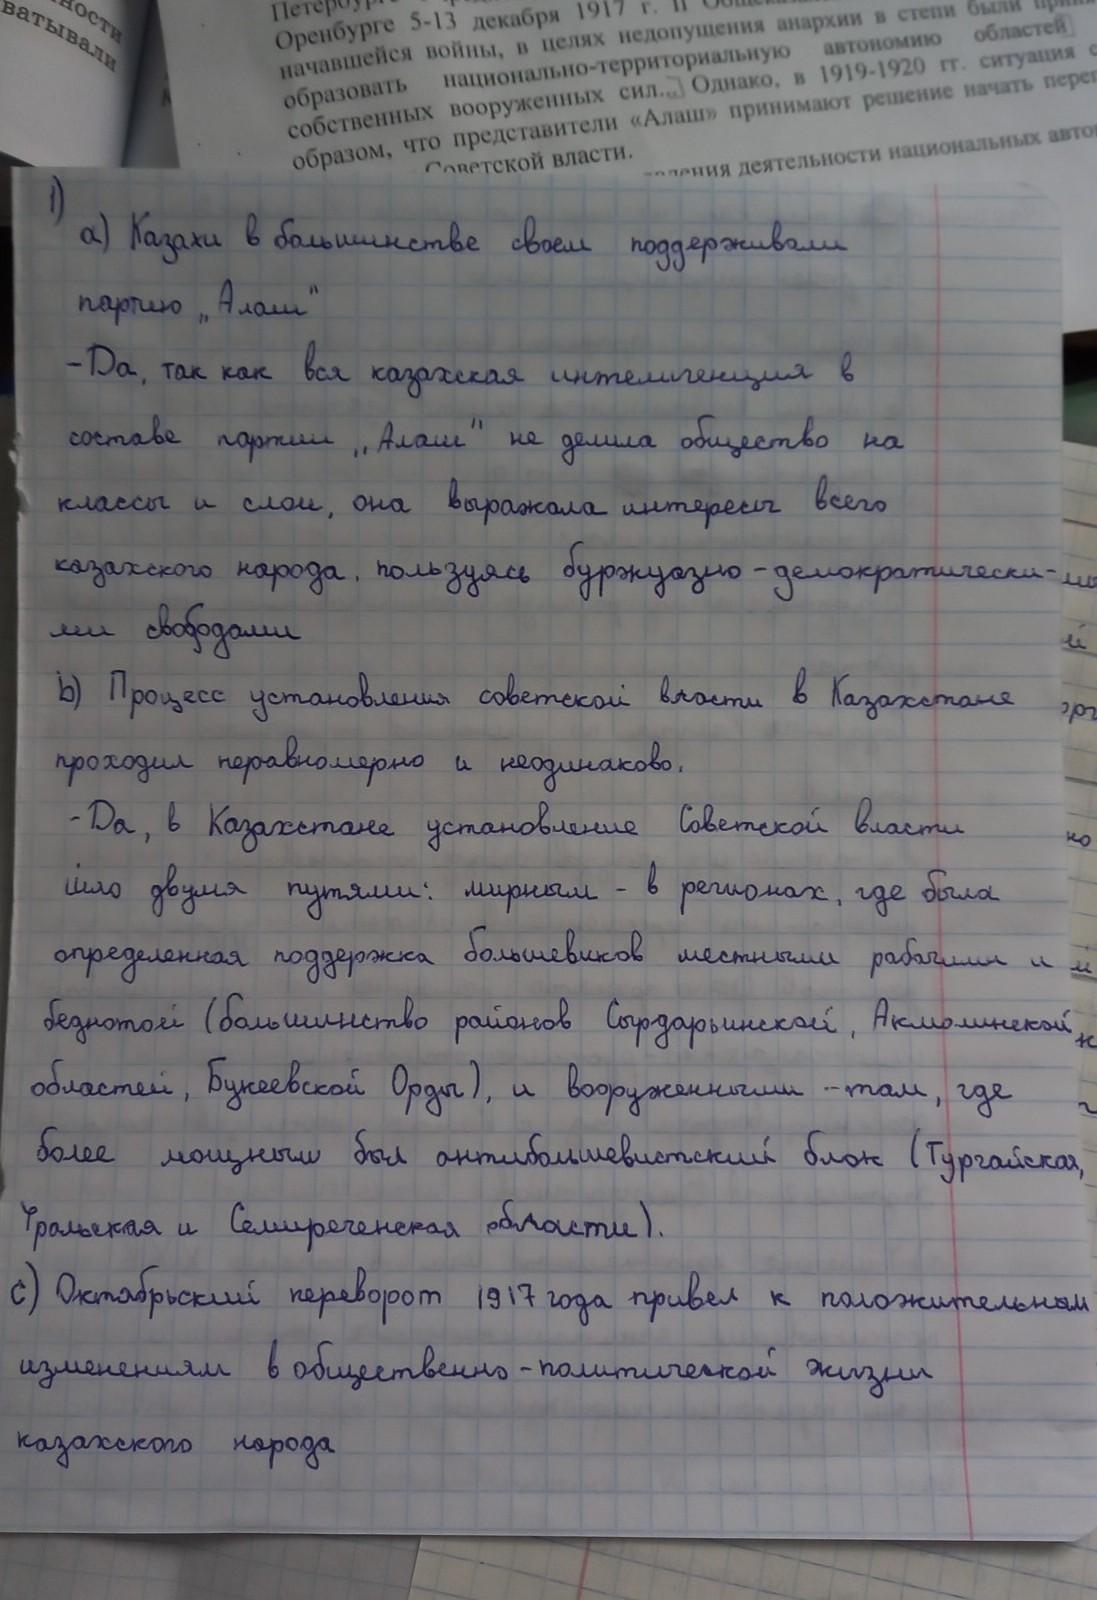 ности
ватывали
Оренбурге 5-13 декабря 1917 г. II
начавшейся войны, в целях недопущения анархии в степи были
образовать национально-территориальную автономию областей
собственных вооруженных сил... Однако, в 1919-1920 гг. ситуация
образом, что представители «Алаш» принимают решение начать
Советской власти.
деятельности национальных
1)
а) Казахи в большинстве своем поддерживали
партию „Алаш"
-Да, так как вся казахская интелигенция в
составе партии „Алаш" не делила общество на
классы и слои, она выражала интересы всего
казахского народа, пользуясь буржуазно-демократически-
ми свободами
b) Процесс установления советской власти в Казахстане
проходил неравномерно и неодинаково.
-Да, в Казахстане установление Советской власти
шло двумя путями: мирным - в регионах, где была
определенная поддержка большевиков местными рабочими и
беднотой (большинство районов Сырдарьинской, Акмолинской
областей, Букеевской Орды), и вооруженными - там, где
более мощным был антибольшевистский блок (Тургайская,
Уральская и Семиреченская области).
c) Октябрьский переворот 1917 года привел к положительным
изменениям в общественно-политической жизни
казахского народа